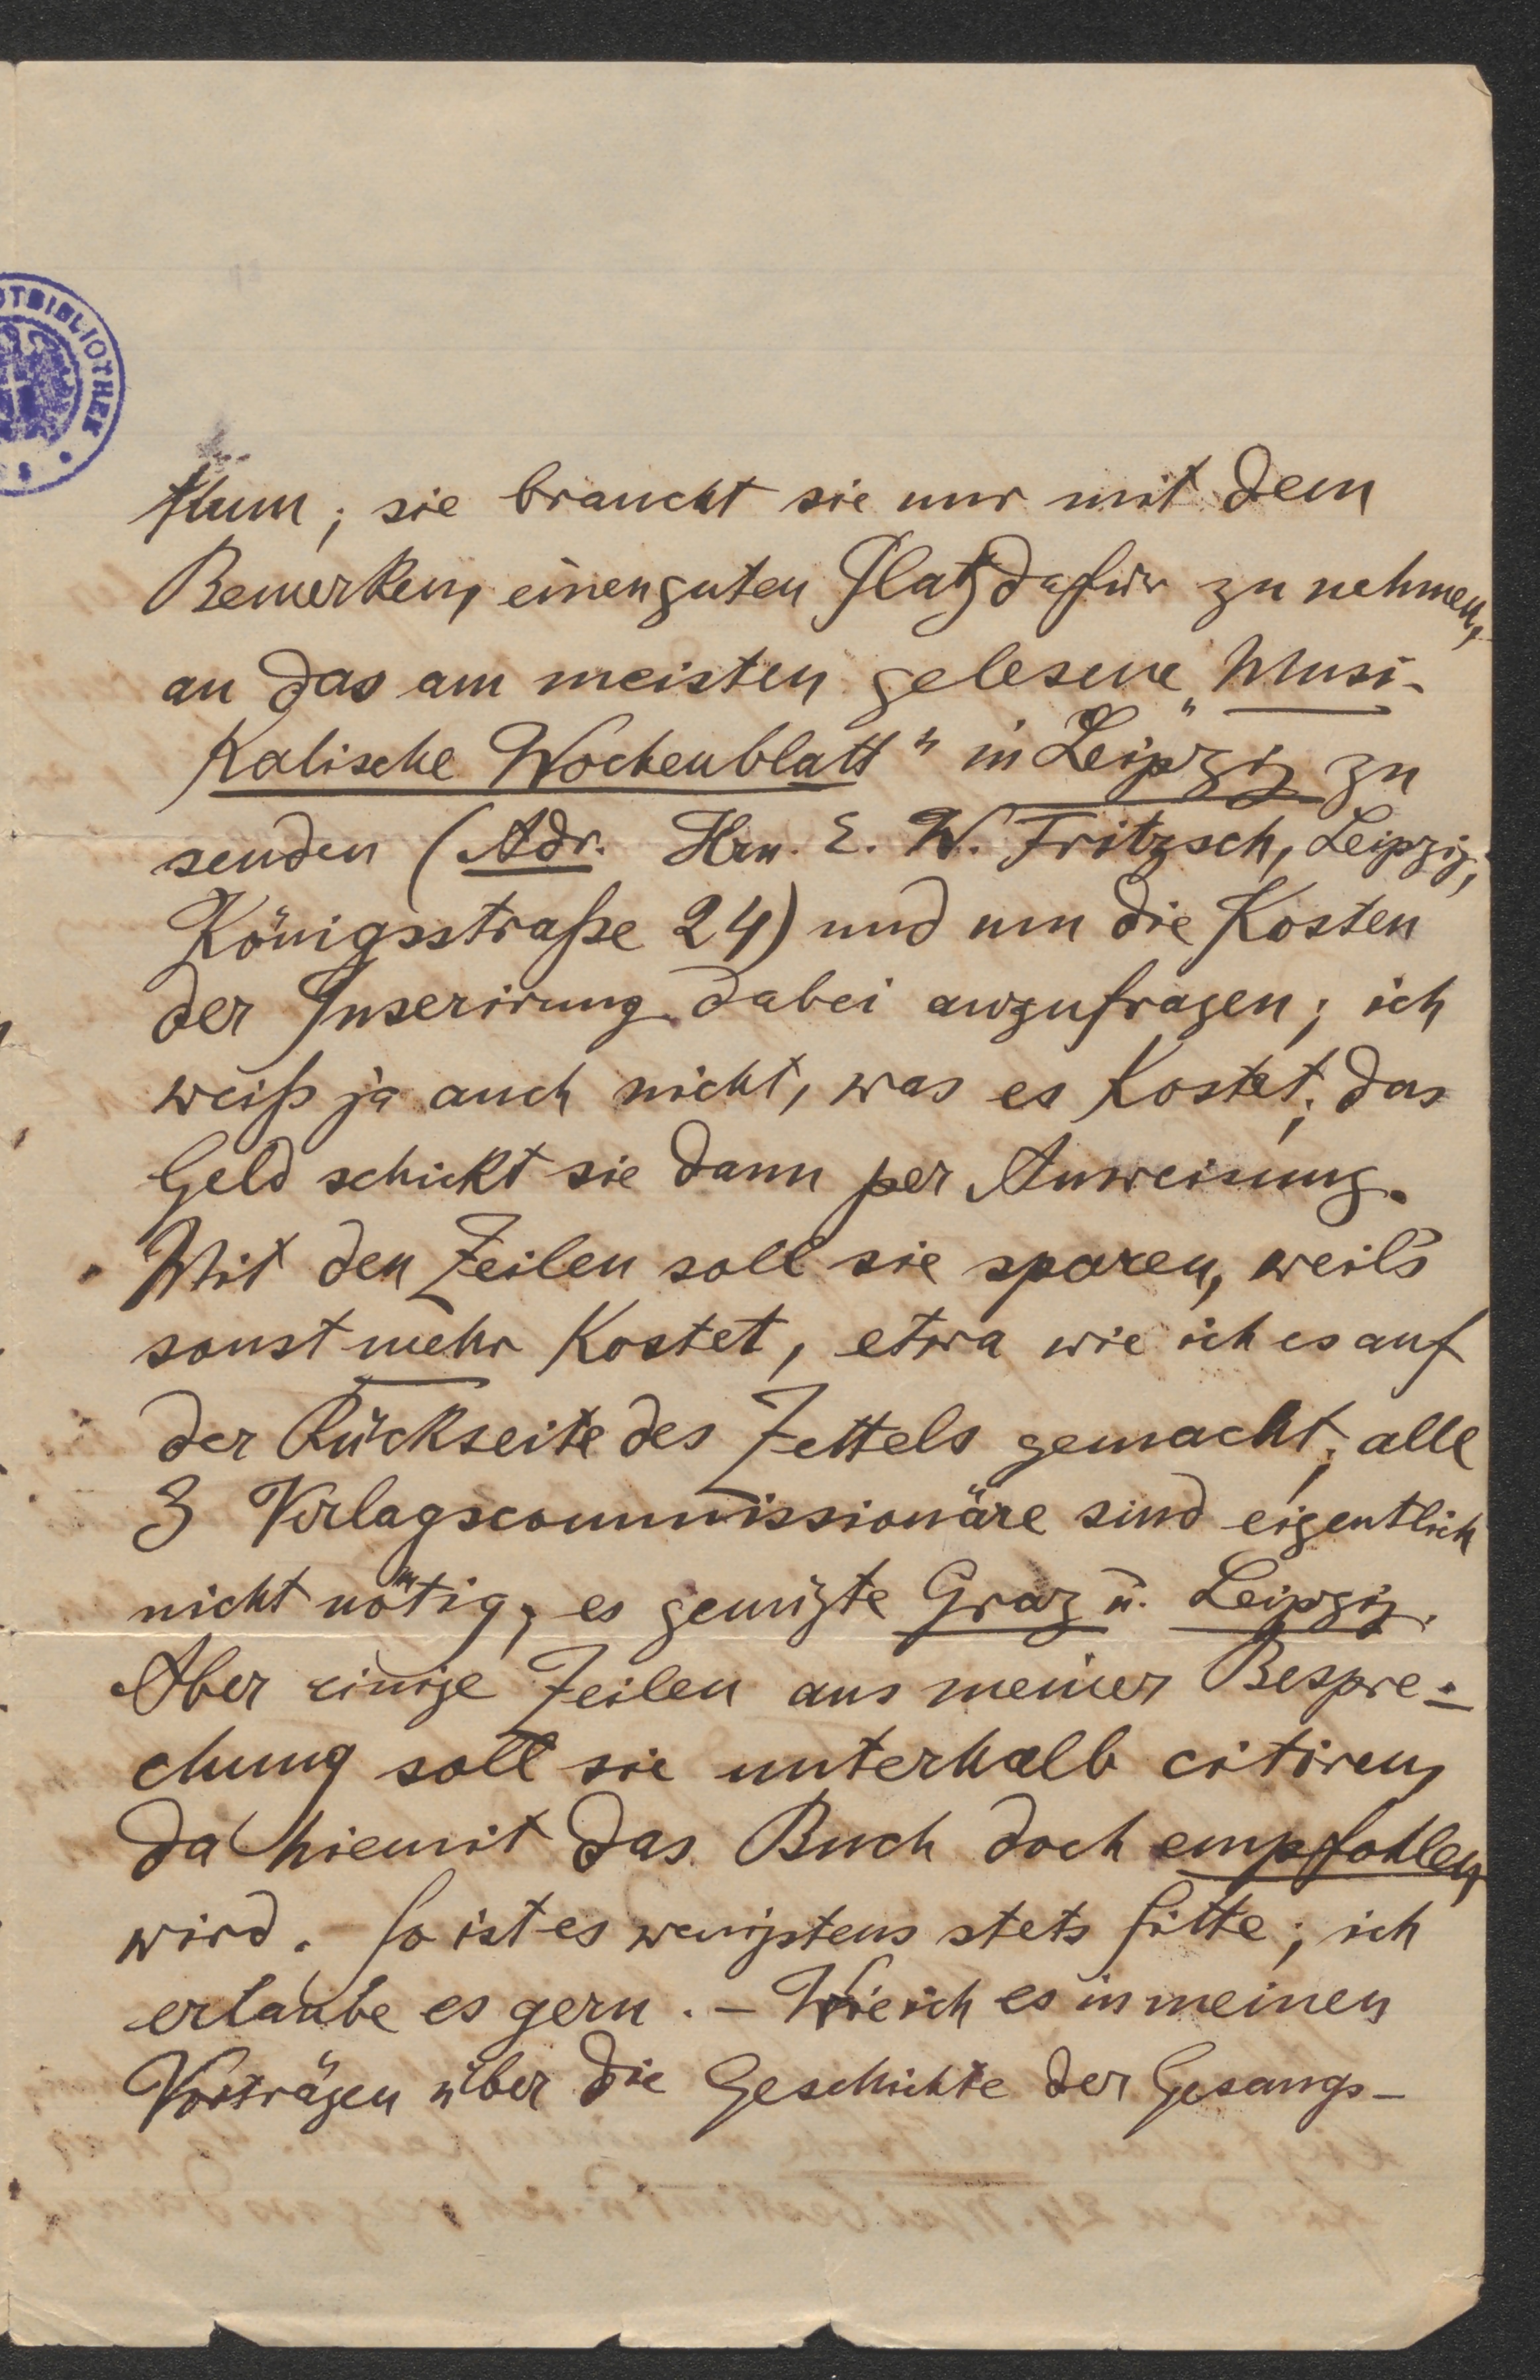 TBIBLIOTHEK
thun; sie braucht sie nur mit dem
Bemerken, einen guten Platz dafür zu nehmen,
an das am meisten gelesene „Musi-
kalische Wochenblatt“ in Leipzig zu
senden (Adr. Hrn. E. W. Fritzsch, Leipzig,
Königsstraße 24) und um die Kosten
der Inserirung dabei anzufragen; ich
weiß ja auch nicht, was es kostet; das
Geld schickt sie dann per Anweisung.
Mit den Zeilen soll sie sparen, weil's
sonst mehr kostet, etwa wie ich es auf
der Rückseite des Zettels gemacht; alle
3 Verlagscommissionäre sind eigentlich
nicht nötig, es genügte Graz u. Leipzig.
Aber einige Zeilen aus meiner Bespre-
chung soll sie unterhalb citiren,
da hiemit das Buch doch empfohlen
wird. So ist es wenigstens stets Sitte; ich
erlaube es gern. – Wie ich es in meinen
Vorträgen über die Geschichte der Gesangs-